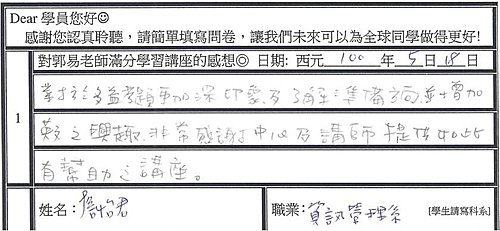 Dear 學員您好☺
感謝您認真聆聽，請簡單填寫問卷，讓我們未來可以為全球同學做得更好!
對郭易老師滿分學習講座的感想◎ 日期: 西元 100 年 5 月 18 日
對於多益題更加深印象及確實準備方向,並增加
英文之興趣,非常感謝中心及講師提供如此
有幫助之講座。
1
姓名: 詹怡君
職業: 資訊管理系 [學生請寫科系]